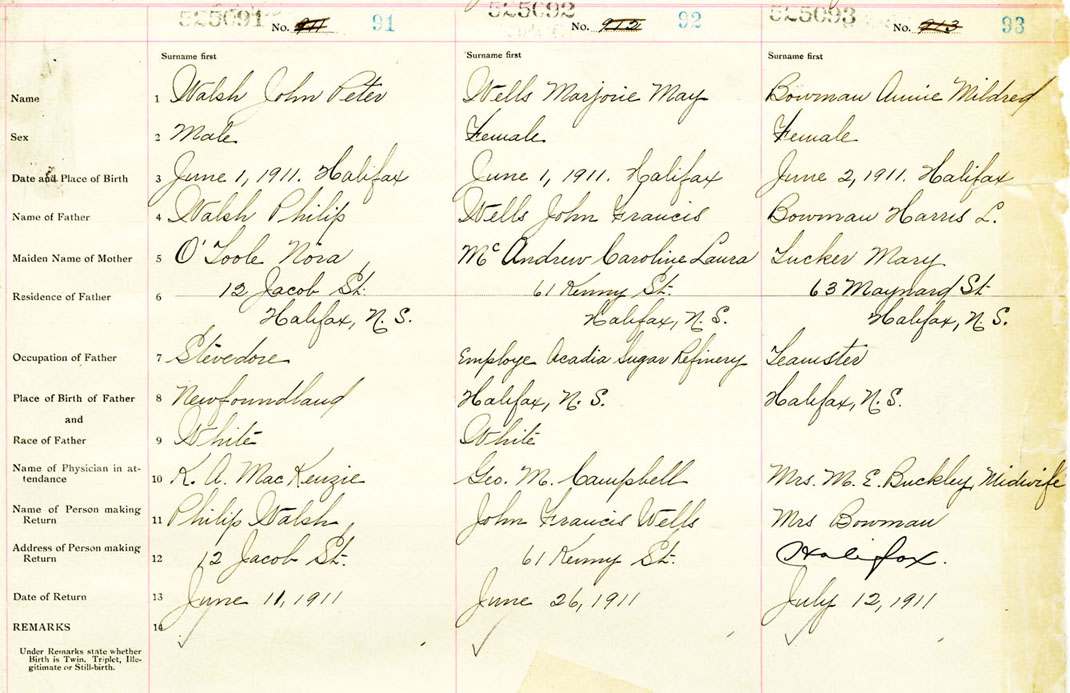 525091 No. 911 91 525092 No. 912 92 525093 No. 913 93
Surname first Surname first Surname first
Name 1 Walsh John Peter Wells Marjorie May Bowman Annie Mildred
Sex 2 Male Female Female
Date and Place of Birth 3 June 1, 1911. Halifax June 1, 1911. Halifax June 2, 1911. Halifax
Name of Father 4 Walsh Philip Wells John Francis Bowman Harris L.
Maiden Name of Mother 5 O'Toole Nora McAndrew Caroline Laura Tucker Mary
Residence of Father 6 12 Jacob St. 61 Kenny St. 63 Maynard St
Halifax, N.S. Halifax, N.S. Halifax, N.S.
Occupation of Father 7 Stevedore Employe Acadia Sugar Refinery Teamster
Place of Birth of Father 8 Newfoundland Halifax, N.S. Halifax, N.S.
and
Race of Father 9 White White
Name of Physician in at-
tendance 10 K. A. MacKenzie Geo. M. Campbell Mrs. M. E. Buckley, Midwife
Name of Person making
Return 11 Philip Walsh John Francis Wells Mrs Bowman
Address of Person making
Return 12 12 Jacob St. 61 Kenny St. Halifax.
Date of Return 13 June 11, 1911 June 26, 1911 July 12, 1911
REMARKS 14
Under Remarks state whether
Birth is Twin, Triplet, Ille-
gitimate or Still-birth.